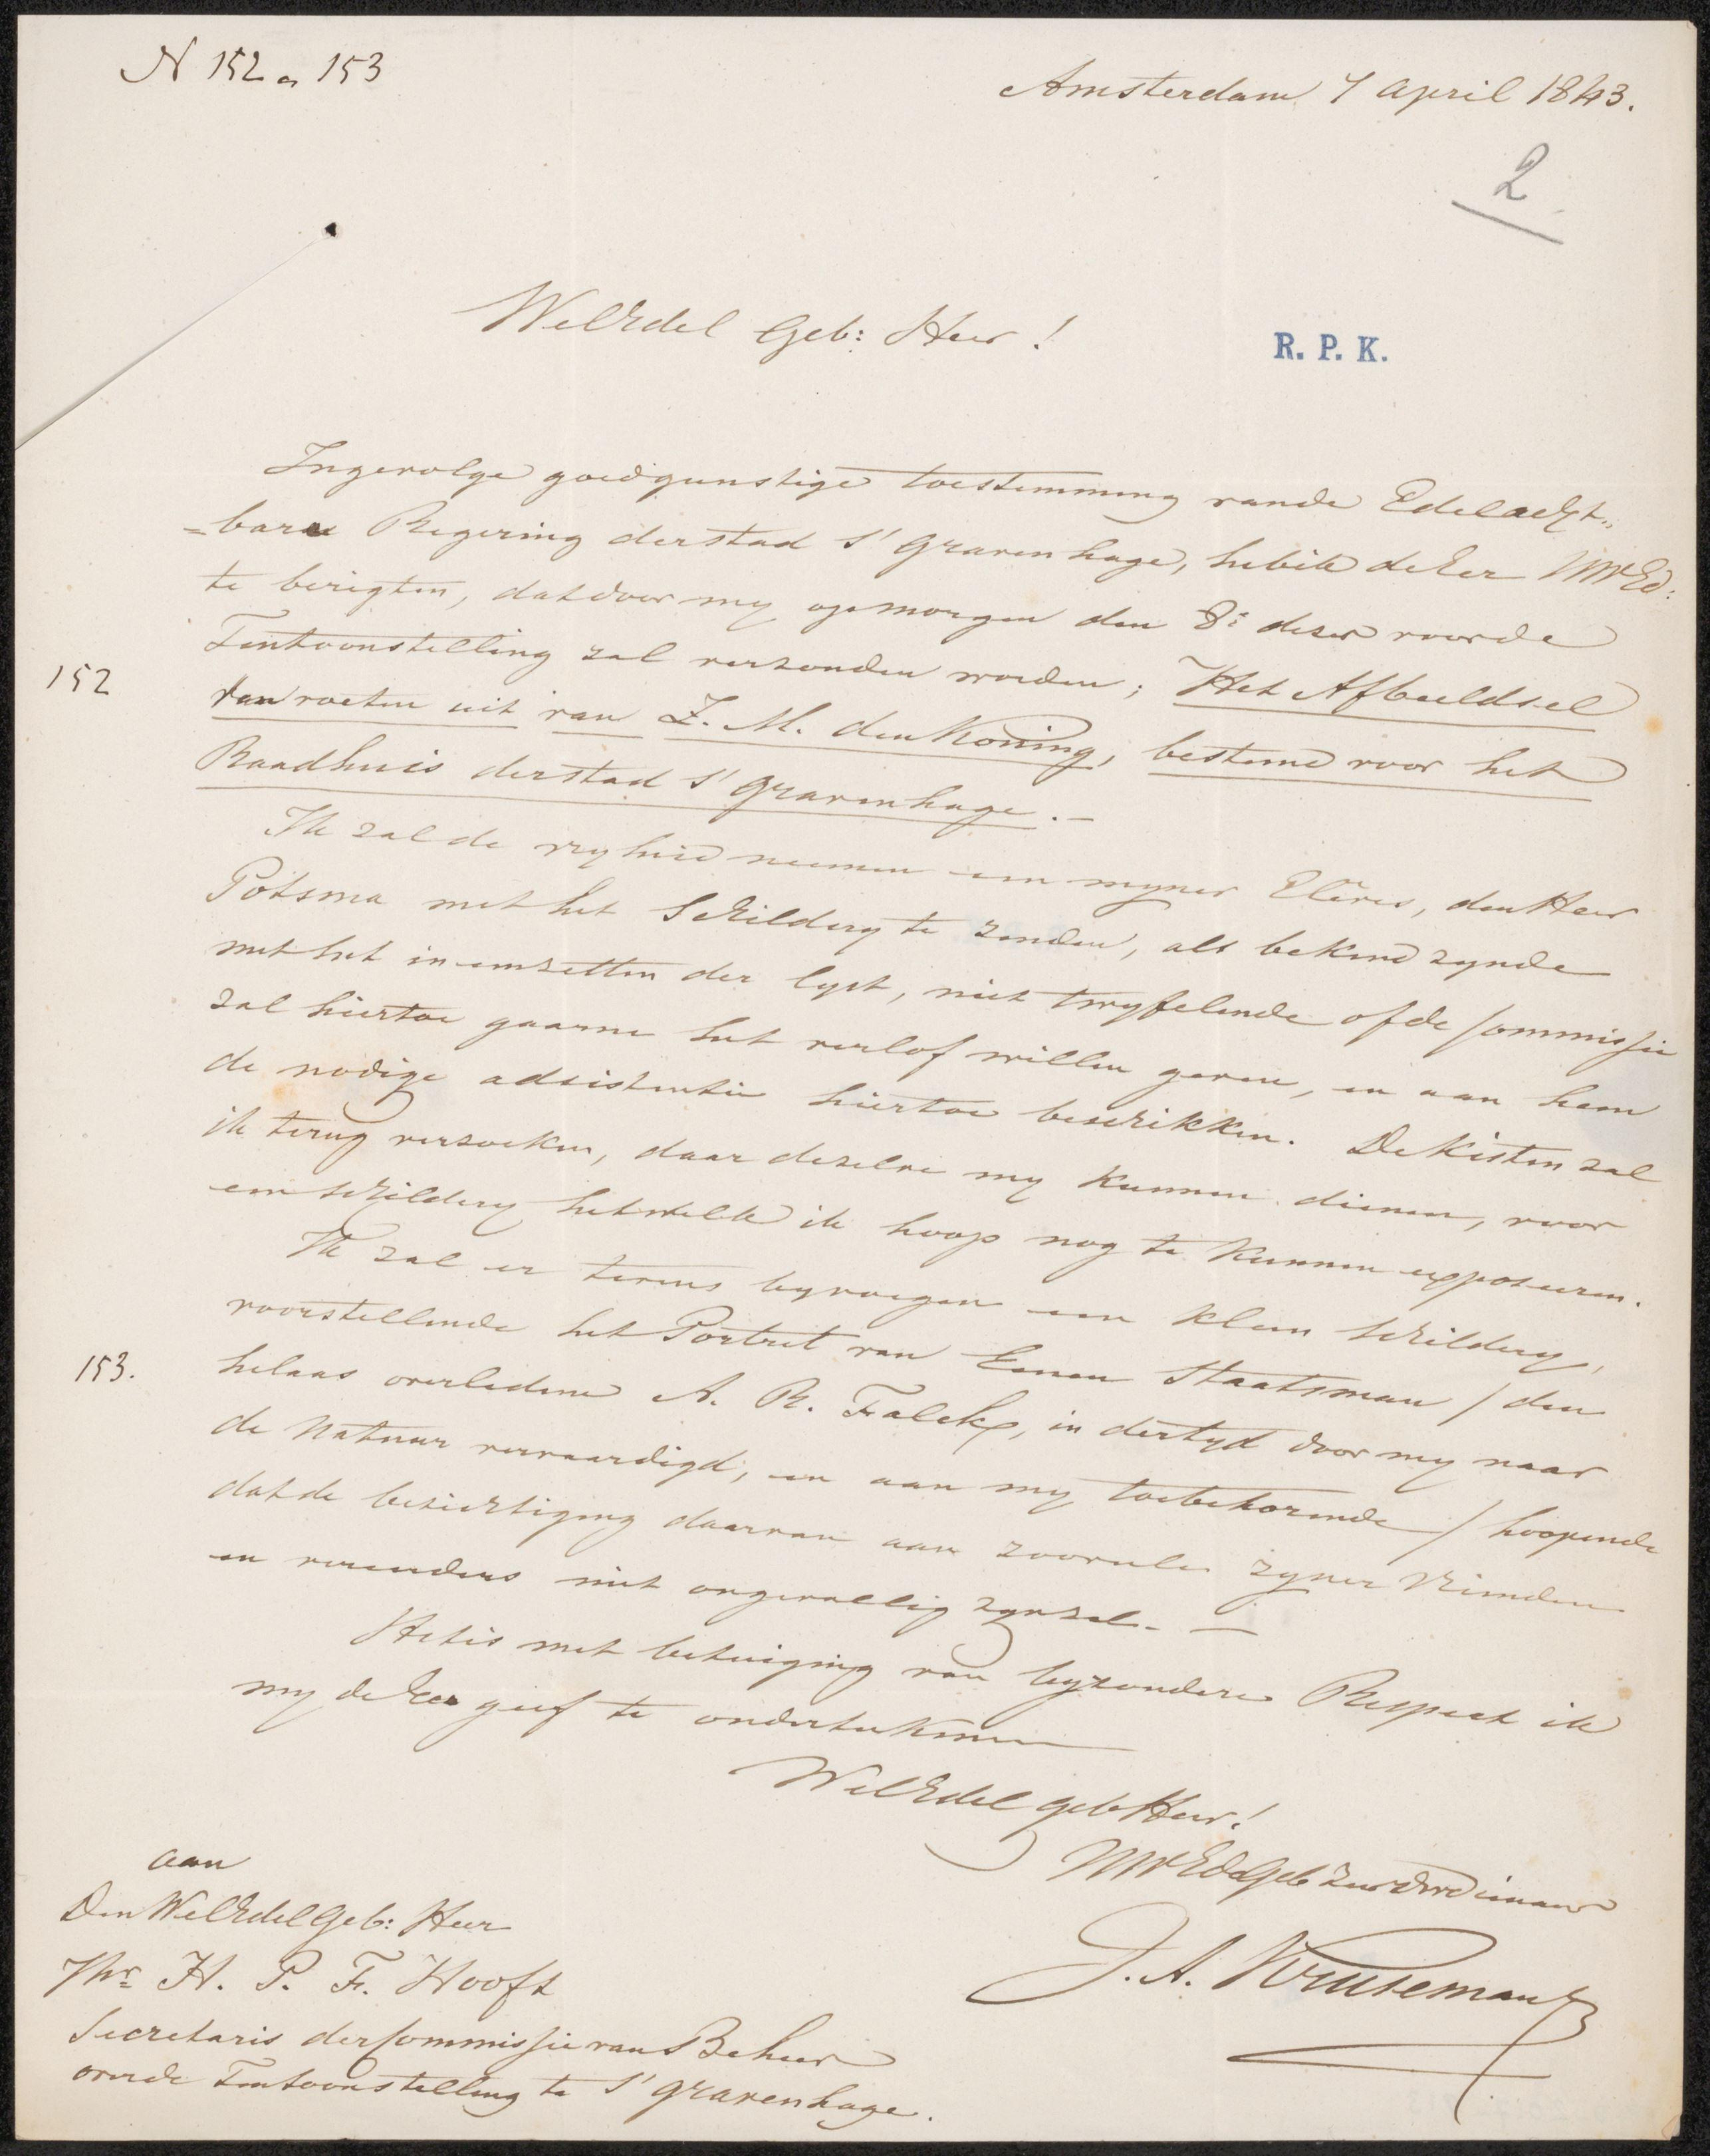 N 152 a 153
Amsterdam 7 April 1843.
2
WelEdel Geb: Heer!
R. P. K.
Ingevolge goedgunstige toestemming vande Edelacht„
=bare Regering derstad s' Gravenhage, hebik deEer UWEd:
te berigten, datdoor my op morgen den 8e dezer voorde
Tentoonstelling zal verzonden worden; Het Afbeeldsel
152
van voeten uit van Z. M. den Koning, bestemd voor het
Raadhuis derstad s' Gravenhage. –
Ik zal de vryheid neemen een myner Elèves, den Heer
Potsma met het Schildery te zenden, als bekend zynde
met het in eenzetten der lyst, niet twyfelende of de Commissie
zal hiertoe gaarne het verlof willen geven, en aan hem
de nodige adsistentie hiertoe beschikken. De Kisten zal
ik terug verzoeken, daar dezelve my kunnen dienen, voor
een schildery hetwelk ik hoop nog te kunnen exposeeren.
Ik zal er tevens byvoegen een klein schildery,
voorstellende het Portret van Eenen Staatsman / den
153.
helaas overledene A. R. Falck, in dertyd door my naar
de Natuur vervaardigd, en aan my toebehorende / hoopende
dat de bezichtiging daarvan aan zoovele zyner Vrienden
en vereerders niet ongevallig zyn zal. —
Het is met betuiging van byzondere Respect ik
my de Eer geef te ondertekenen
WelEdel geb Heer!
UWEdGeb Dienaar
J. A. Kruseman
aan
Den WelEdelGeb: Heer
Jhr H. P. F. Hooft
Secretaris der Commissie van Beheer
overde Tentoonstelling te s' Gravenhage.